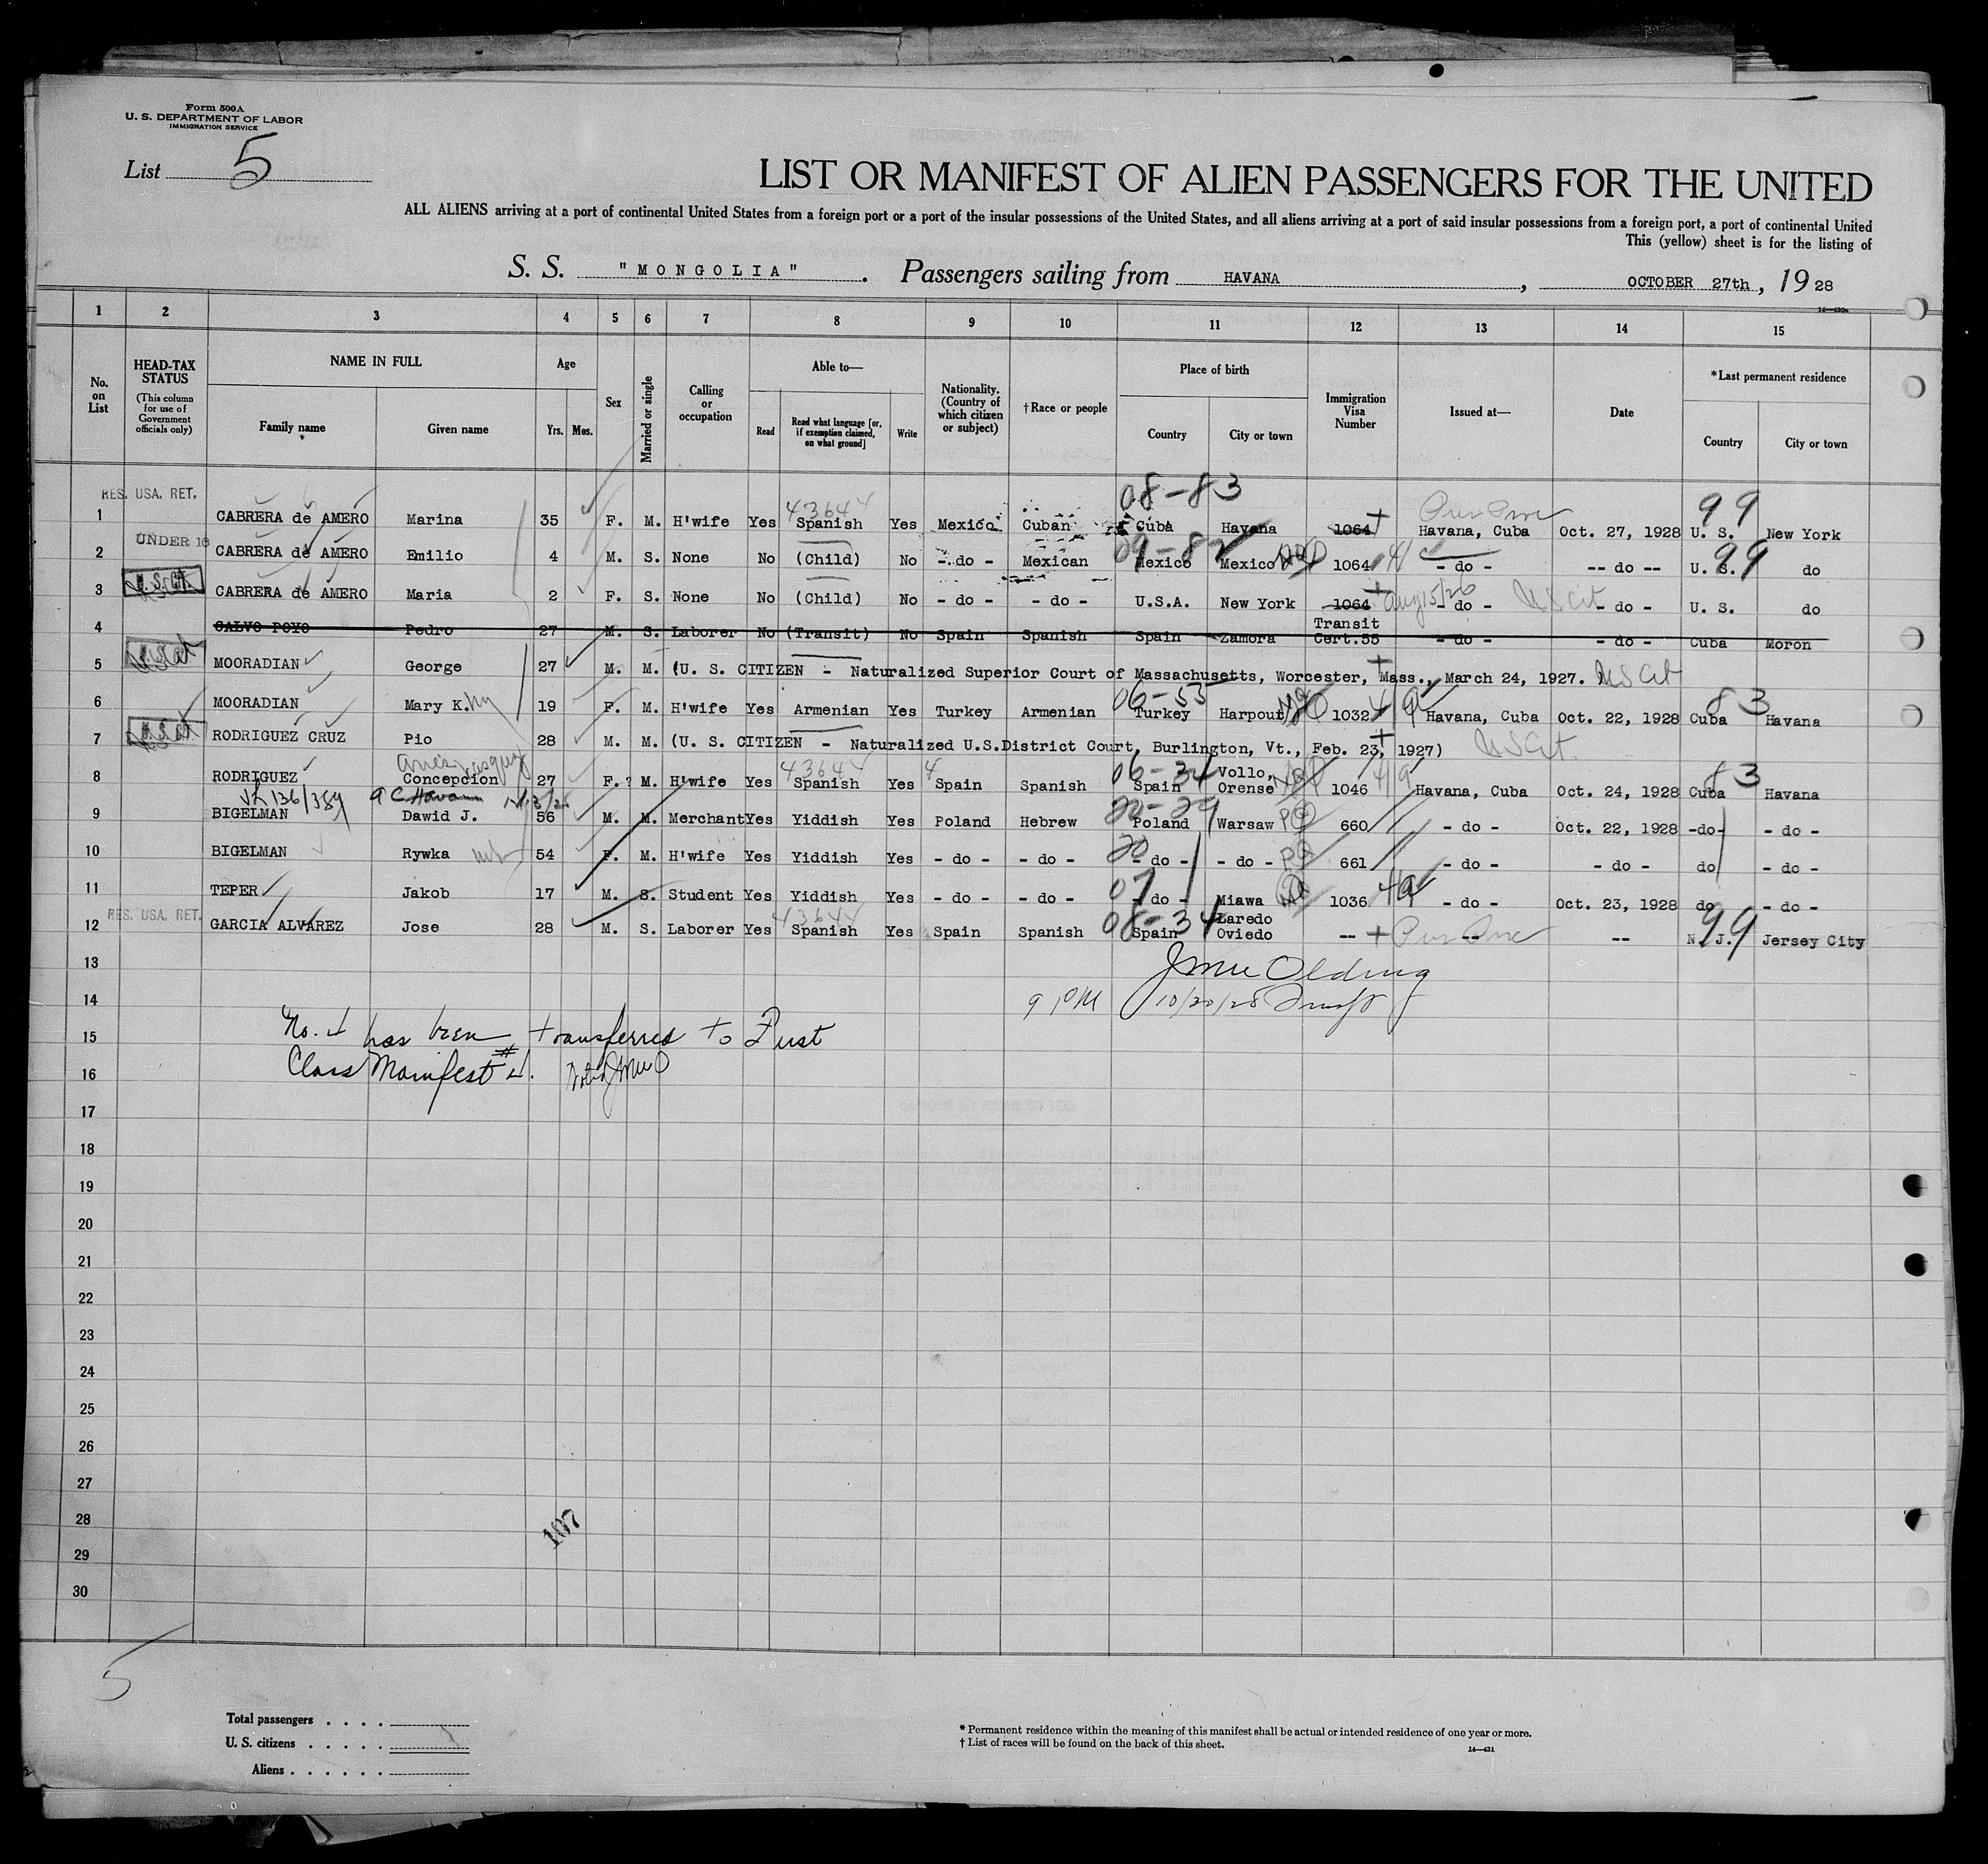 Form 500A
U. S. DEPARTMENT OF LABOR
IMMIGRATION SERVICE
List 5
LIST OR MANIFEST OF ALIEN PASSENGERS FOR THE UNITED
ALL ALIENS arriving at a port of continental United States from a foreign port or a port of the insular possessions of the United States, and all aliens arriving at a port of said insular possessions from a foreign port, a port of continental United
This (yellow) sheet is for the listing of
S. S. "MONGOLIA". Passengers sailing from HAVANA, OCTOBER 27th, 1928
1 2 3 4 5 6 7 8 9 10 11 12 13 14 15
No. on List
HEAD-TAX STATUS (This column for use of Government officials only)
NAME IN FULL
Family name
Given name
Age
Yrs. Mos.
Sex
Married or single
Calling or occupation
Able to—
Read
Read what language [or, if exemption claimed, on what ground]
Write
Nationality. (Country of which citizen or subject)
†Race or people
Place of birth
Country
City or town
Immigration Visa Number
Issued at—
Date
*Last permanent residence
Country
City or town
RES. USA. RET. 08-83
43644 99
1 CABRERA de AMERO Marina 35 F. M. H'wife Yes Spanish Yes Mexico Cuban Cuba Havana 1064 Havana, Cuba Oct. 27, 1928 U. S. New York
UNDER 16
2 CABRERA de AMERO Emilio 4 M. S. None No (Child) No - do - Mexican Mexico Mexico 1064 - do - -- do -- U. S. 99 do
3 U.S. Cit. CABRERA de AMERO Maria 2 F. S. None No (Child) No - do - - do - U.S.A. New York 1064 Aug 15/26 - do - US Cit - do - U. S. do
4 CALVO POYO Pedro 27 M. S. Laborer No (Transit) No Spain Spanish Spain Zamora Transit Cert.55 - do - - do - Cuba Moron
5 U.S. Cit MOORADIAN George 27 M. M. (U. S. CITIZEN - Naturalized Superior Court of Massachusetts, Worcester, Mass., March 24, 1927. US Cit
6 MOORADIAN Mary K. 19 F. M. H'wife Yes Armenian Yes Turkey Armenian 06-53 Turkey Harpout 1032 Havana, Cuba Oct. 22, 1928 Cuba 83 Havana
7 U.S. Cit. RODRIGUEZ CRUZ Pio 28 M. M. (U. S. CITIZEN - Naturalized U.S.District Court, Burlington, Vt., Feb. 23, 1927) US Cit.
8 RODRIGUEZ Concepcion 27 F. M. H'wife Yes 43644 Spanish Yes Spain Spanish 06-34 Spain Vollo, Orense 1046 Havana, Cuba Oct. 24, 1928 Cuba 83 Havana
136/389
9 BIGELMAN Dawid J. 56 M. M. Merchant Yes Yiddish Yes Poland Hebrew Poland Warsaw 660 - do - Oct. 22, 1928 -do- - do -
10 BIGELMAN Rywka 54 F. M. H'wife Yes Yiddish Yes - do - - do - 20 - do - - do - 661 - do - - do - do - do -
11 TEPER Jakob 17 M. S. Student Yes Yiddish Yes - do - - do - 07 - do - Miawa 1036 - do - Oct. 23, 1928 do - do -
RES. USA. RET.
12 GARCIA ALVAREZ Jose 28 M. S. Laborer Yes 43644 Spanish Yes Spain Spanish 08-34 Spain Laredo Oviedo -- -- -- N. J. 99 Jersey City
13
14 9 PM
15 No. 4 has been transferred to First
16 Class Manifest #4.
17
18
19
20
21
22
23
24
25
26
27
28 107
29
30
5
Total passengers . . . .
U. S. citizens . . . . .
Aliens . . . . . .
* Permanent residence within the meaning of this manifest shall be actual or intended residence of one year or more.
† List of races will be found on the back of this sheet.
14—431